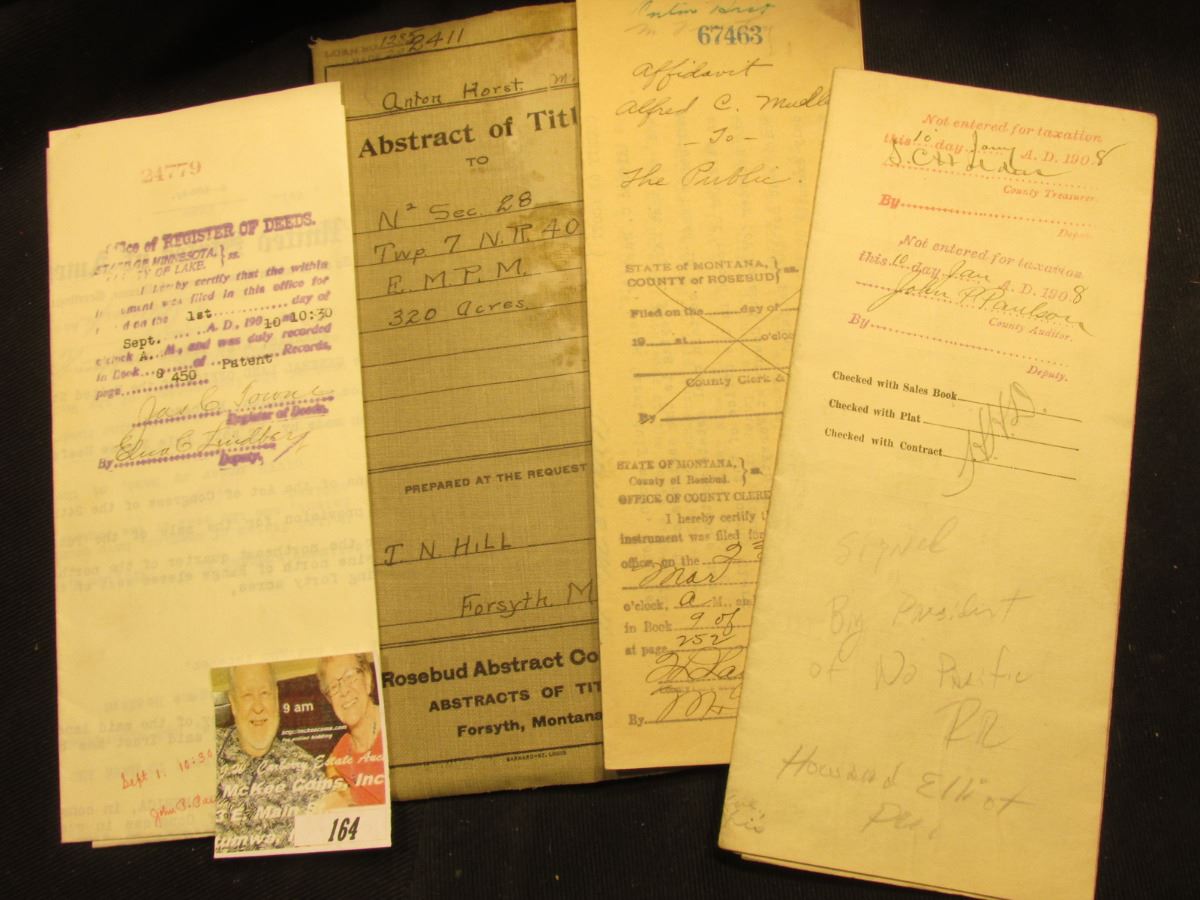 24779
of REGISTER OF DEEDS.
STATE OF MINNESOTA, } ss.
OF LAKE.
hereby certify that the within
was filed in this office for
on the 1st day of
Sept. A. D., 1910 at 10:30
o'clock A. M., and was duly recorded
in Book 8 of Patent Records,
page 450
Jas C. Towne
Register of Deeds,
By
Deputy,
Sept 1. 10:30
9 am
Estate Auc
McKee Coins, Inc
164
LOAN NO.
2411
Anton Horst. M.
Abstract of Titl
TO
N² Sec. 28
Twp. 7 N. R. 40
E. M. P. M.
320 acres.
PREPARED AT THE REQUEST
T. N. HILL
Forsyth, M
Rosebud Abstract Co
ABSTRACTS OF TIT
Forsyth, Montana
BARNARD-ST. LOUIS
67463
Affidavit
Alfred C.
- To -
The Public.
STATE OF MONTANA, } ss.
COUNTY OF ROSEBUD
Filed on the day of
19 at o'cloc
County Clerk &
By
STATE OF MONTANA, } ss.
County of Rosebud.
OFFICE OF COUNTY CLERK
I hereby certify t
instrument was filed for
office, on the 23
Mar
o'clock, A M., an
in Book 9 of
at page 252
By
Not entered for taxation
this 10 day Jany A. D. 1908
County Treasurer.
By
Deputy.
Not entered for taxation
this 10 day Jan A. D. 1908
John P. Paulson
County Auditor.
By
Deputy.
Checked with Sales Book
Checked with Plat
Checked with Contract
Signed
By President
of No Pacific
RR
Howard Elliot
Pres